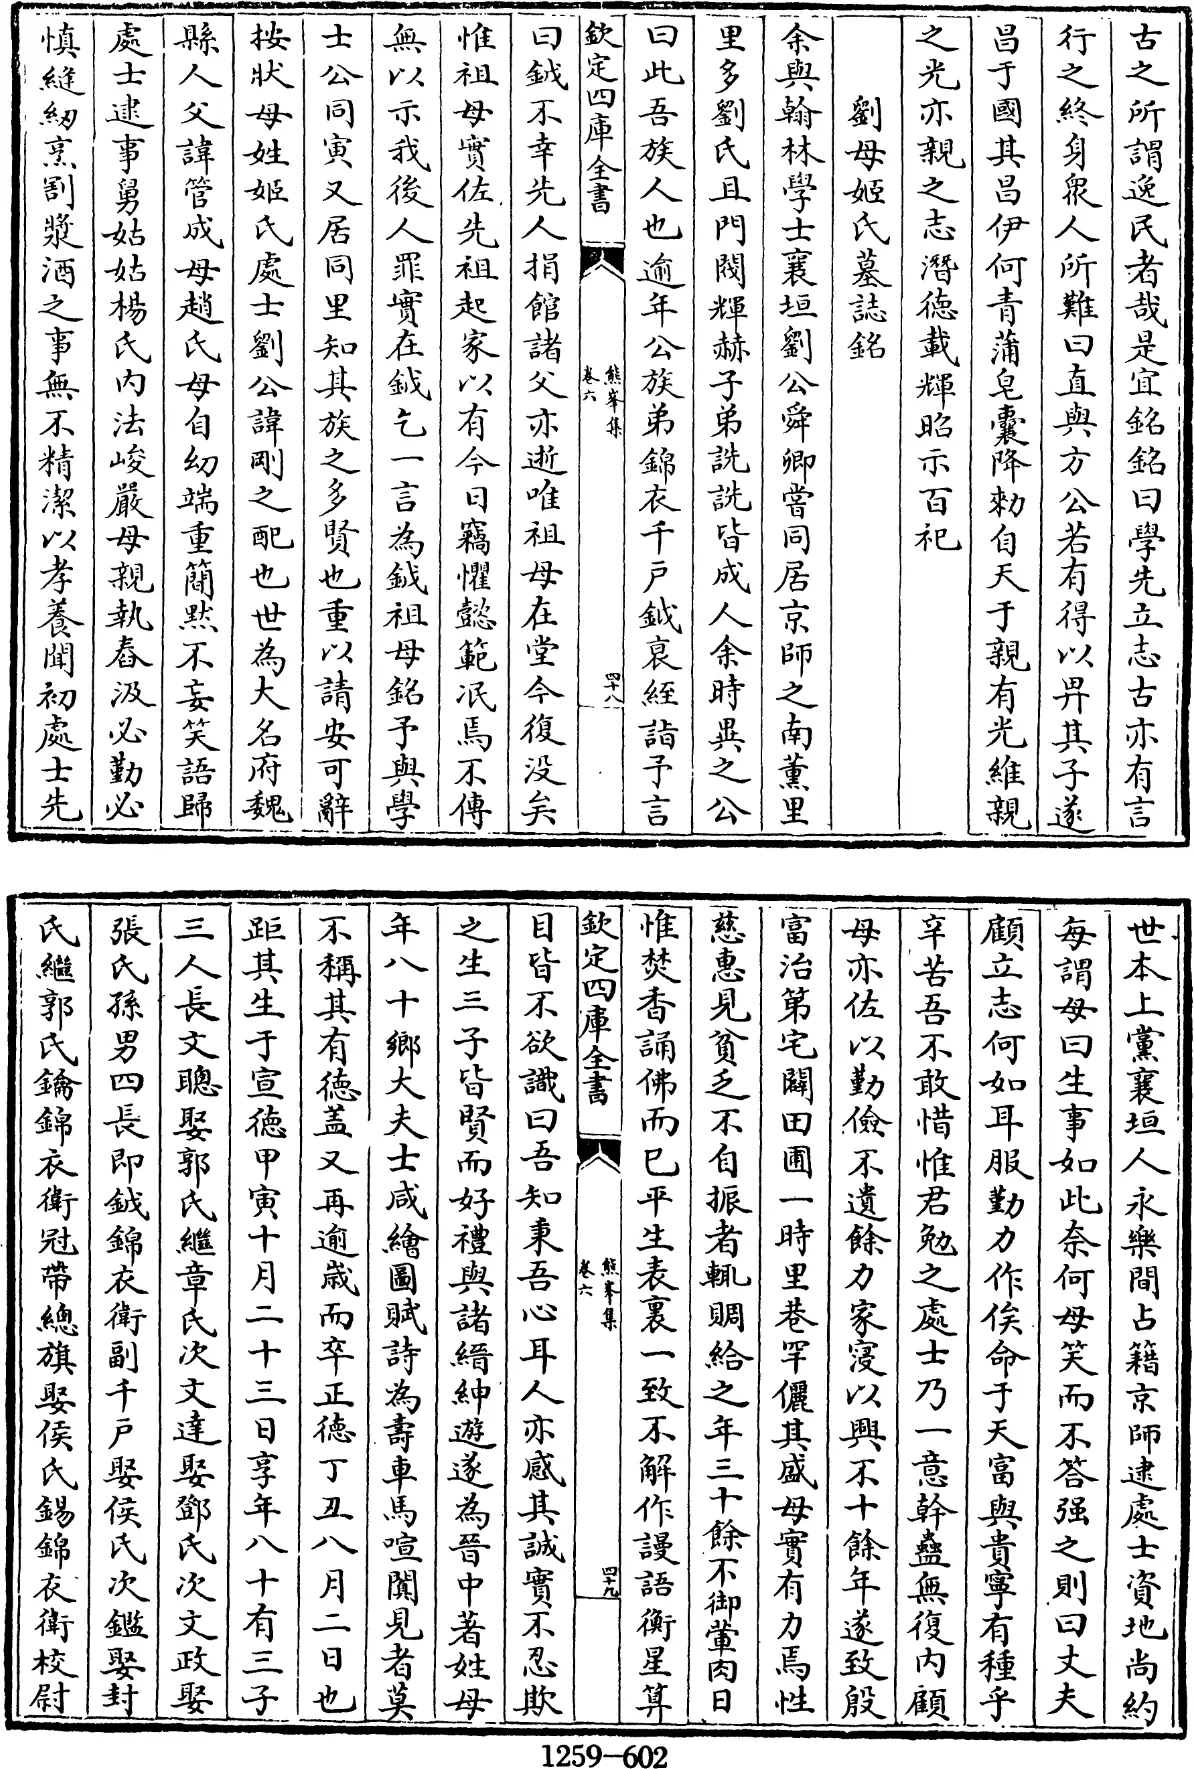 古之所謂逸民者哉是宜銘銘曰學先立志古亦有言
行之終身衆人所難曰直與方公若有得以畀其子遂
昌于國其昌伊何青蒲皂囊降勑自天于親有光維親
之光亦親之志潛德載輝昭示百祀
劉母姬氏墓誌銘
余與翰林學士襄垣劉公舜卿嘗同居京師之南薫里
里多劉氏且門閥輝赫子弟詵詵皆成人余時異之公
曰此吾族人也逾年公族弟錦衣千戶鉞裒絰詣予言
欽定四庫全書
熊峯集
卷六
四十八
曰鉞不幸先人捐館諸父亦逝唯祖母在堂今復没矣
惟祖母實佐先祖起家以有今日竊懼懿範泯焉不傳
無以示我後人罪實在鉞乞一言為鉞祖母銘予與學
士公同寅又居同里知其族之多賢也重以請安可辭
按狀母姓姬氏處士劉公諱剛之配也世為大名府魏
縣人父諱管成母趙氏母自幼端重簡黙不妄笑語歸
處士逮事舅姑姑楊氏内法峻嚴母親執舂汲必勤必
慎縫紉烹割漿酒之事無不精潔以孝養聞初處士先
世本上黨襄垣人永樂間占籍京師逮處士資地尚約
每謂母曰生事如此奈何母笑而不答强之則曰丈夫
顧立志何如耳服勤力作俟命于天富與貴寧有種乎
辛苦吾不敢惜惟君勉之處士乃一意幹蠱無復内顧
母亦佐以勤儉不遺餘力家寖以興不十餘年遂致殷
富治第宅闢田圃一時里巷罕儷其盛母實有力焉性
慈惠見貧乏不自振者輒賙給之年三十餘不御葷肉日
惟焚香誦佛而已平生表裏一致不解作謾語衡星算
欽定四庫全書
熊峯集
卷六
四十九
目皆不欲識曰吾知秉吾心耳人亦感其誠實不忍欺
之生三子皆賢而好禮與諸縉紳遊遂為晉中著姓母
年八十鄉大夫士咸繪圖賦詩為壽車馬喧闐見者莫
不稱其有德盖又再逾嵗而卒正德丁丑八月二日也
距其生于宣德甲寅十月二十三日享年八十有三子
三人長文聰娶郭氏繼章氏次文達娶鄧氏次文政娶
張氏孫男四長即鉞錦衣衛副千戶娶侯氏次鑑娶封
氏繼郭氏鑰錦衣衛冠帶總旗娶侯氏錫錦衣衛校尉
1259-602